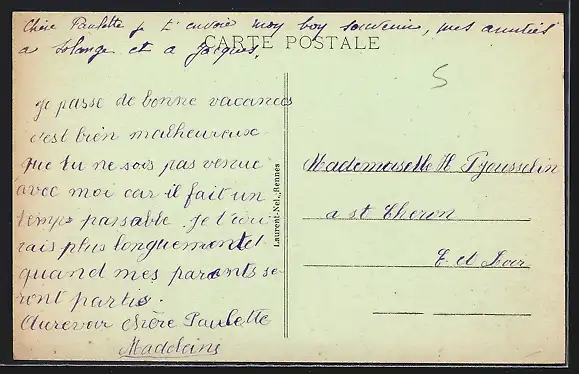 Chère Paulette je t'envoie mon bon souvenir, mes amitiés
a Solange et a Jacques.
CARTE POSTALE
Je passe de bonne vacances
c'est bien malheureux
que tu ne sois pas venue
avec moi car il fait un
temps passable. Je t'écri
rais plus longuement et
quand mes parents se
ront partis.
Aurevoir chère Paulette
Madeleine
Laurent-Nel, Rennes
5
Mademoiselle
a St Cheron
E et Loir